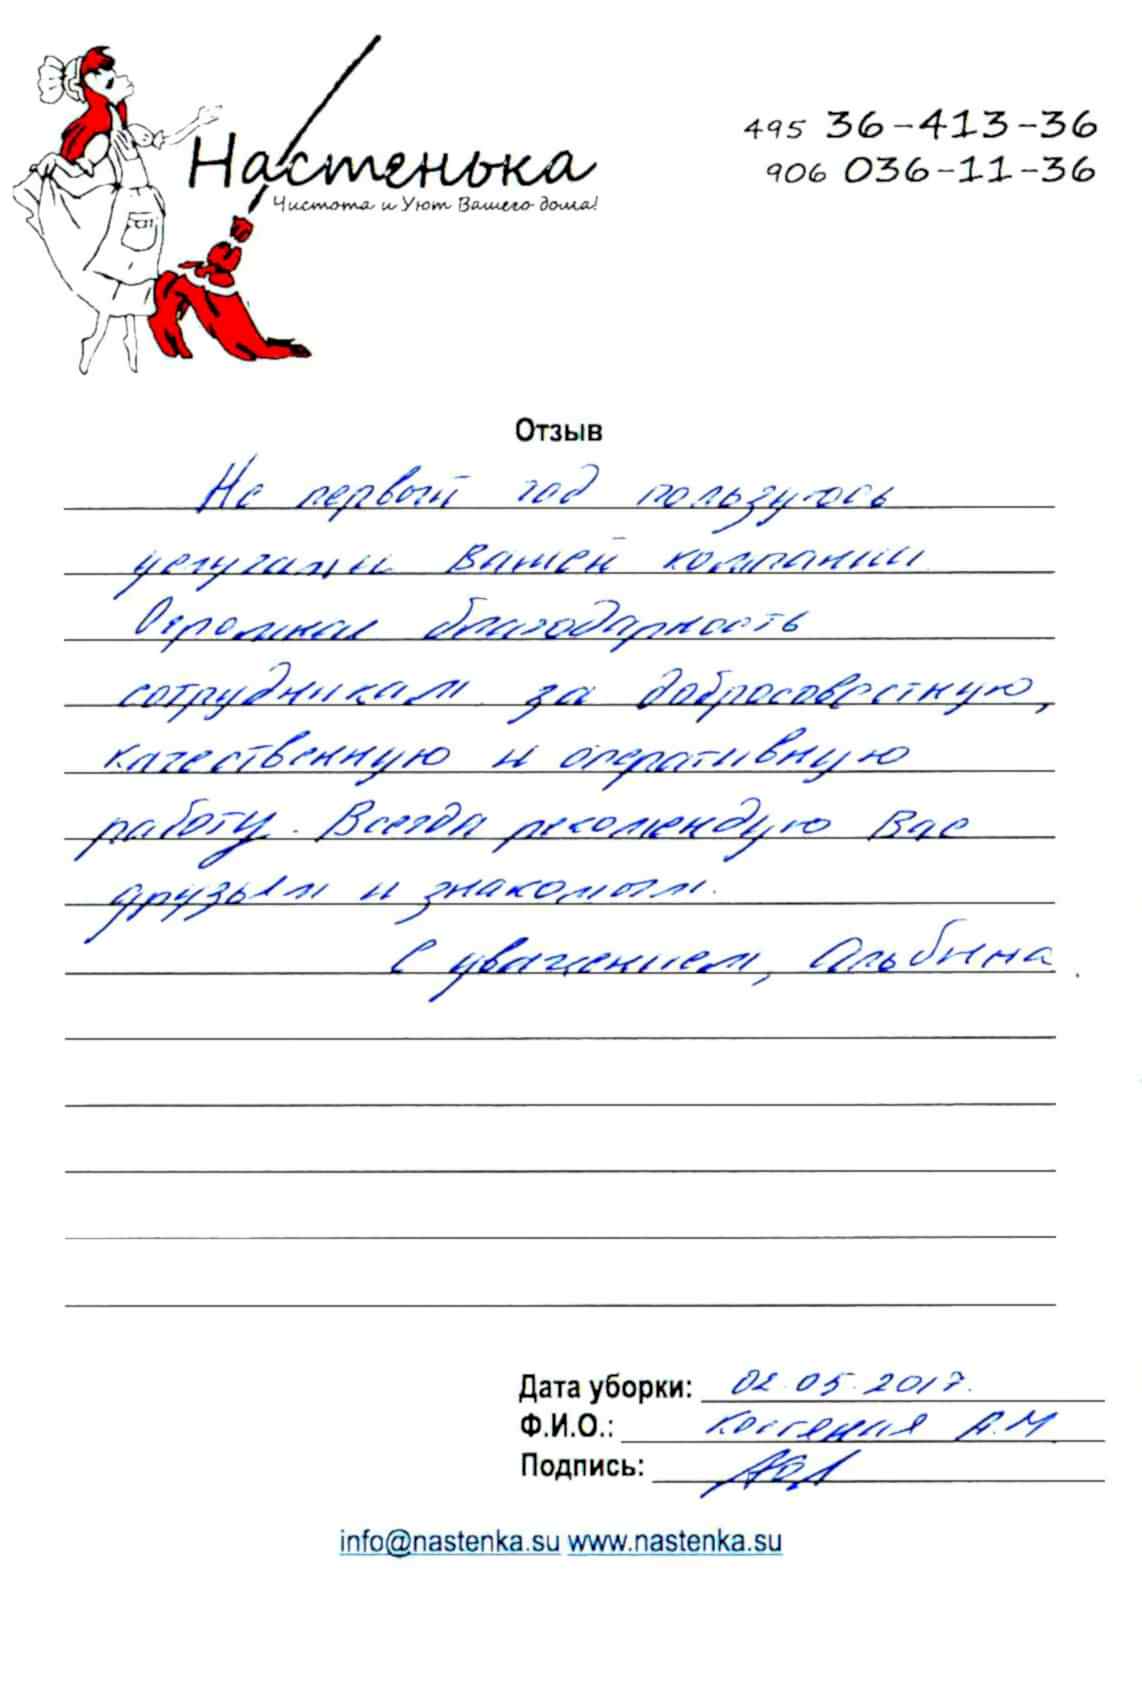 Настенька
Чистота и Уют Вашего дома!
495 36-413-36
906 036-11-36
Отзыв
Не первый год пользуюсь
услугами Вашей компании
Огромная благодарность
сотрудникам за добросовестную,
качественную и оперативную
работу. Всегда рекомендую Вас
друзьям и знакомым.
С уважением, Альбина.
Дата уборки: 02.05.2017.
Ф.И.О.: А.М
Подпись:
info@nastenka.su www.nastenka.su